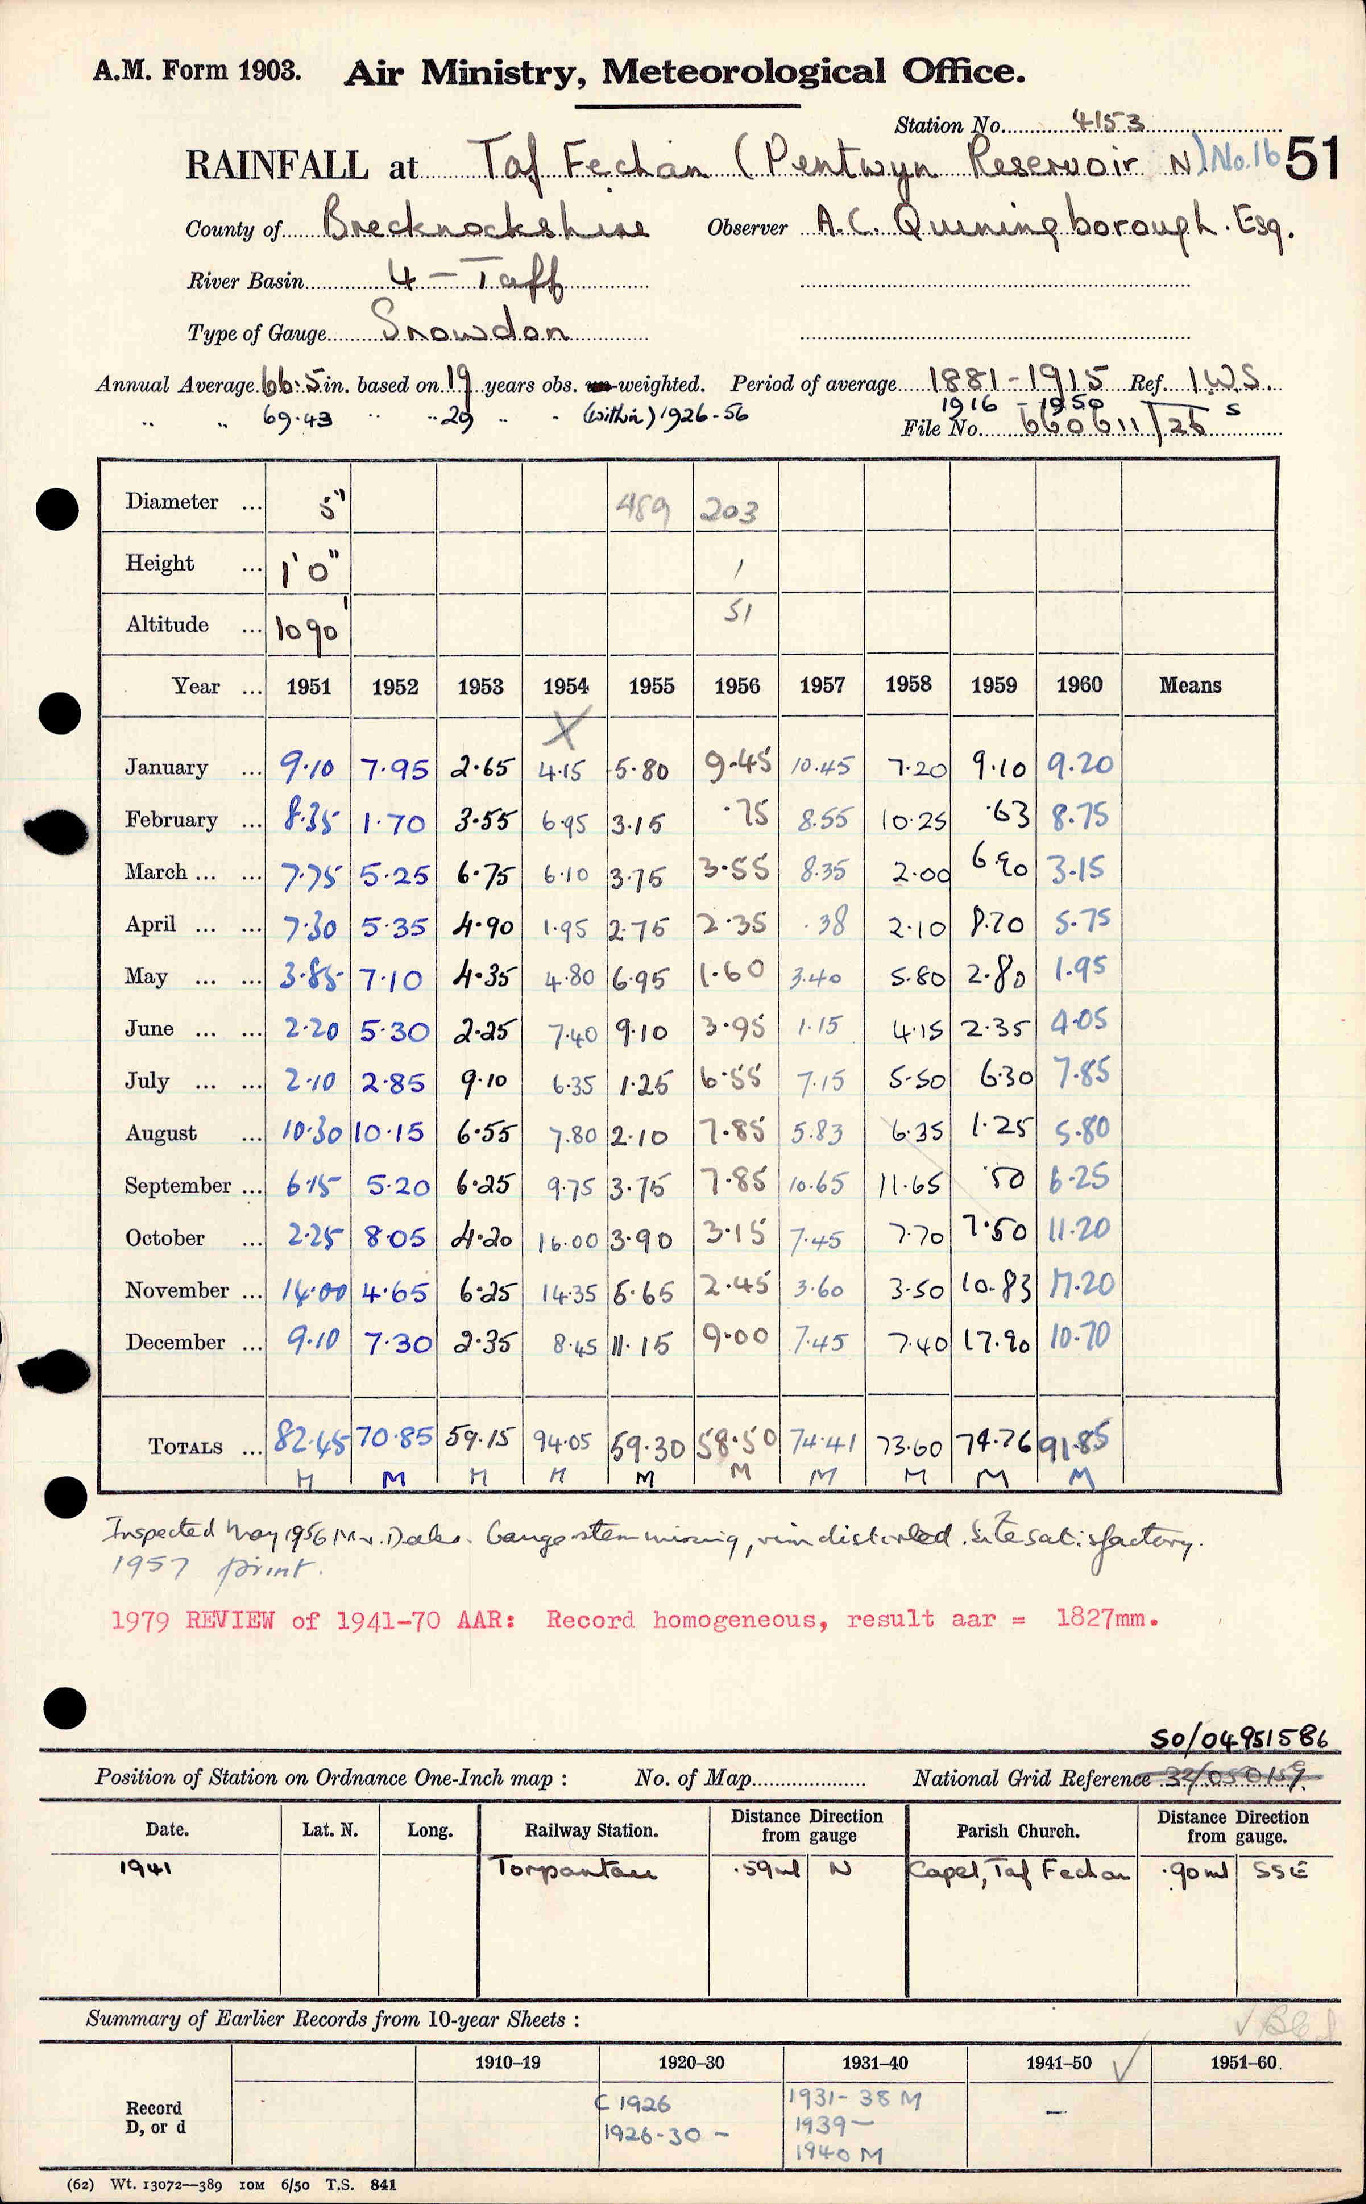 A.M. Form 1903. Air Ministry, Meteorological Office.
Station No. 4153
RAINFALL at Taf Fechan (Pentwyn Reservoir N) No.16 51
County of Brecknockshire Observer A.C. Quiningborough. Esq.
River Basin 4 - Taff
Type of Gauge Snowdon
Annual Average 66.5 in. based on 19 years obs. weighted. Period of average 1881-1915 Ref. I.W.S.
" " 69.43 " " 29 " " (within) 1926-56 1916 - 1950
File No. 660611/26 S
Diameter ... 5" 489 203
Height ... 1' 0" 1
Altitude ... 1090' 51
Year ... 1951 1952 1953 1954 1955 1956 1957 1958 1959 1960 Means
X
January ... 9.10 7.95 2.65 4.15 5.80 9.45 10.45 7.20 9.10 9.20
February ... 8.35 1.70 3.55 6.95 3.15 .75 8.55 10.25 .63 8.75
March ... ... 7.75 5.25 6.75 6.10 3.75 3.55 8.35 2.00 6.90 3.15
April ... ... 7.30 5.35 4.90 1.95 2.75 2.35 .38 2.10 8.70 5.75
May ... ... 3.85 7.10 4.35 4.80 6.95 1.60 3.40 5.80 2.80 1.95
June ... ... 2.20 5.30 2.25 7.40 9.10 3.95 1.15 4.15 2.35 4.05
July ... ... 2.10 2.85 9.10 6.35 1.25 6.55 7.15 5.50 6.30 7.85
August ... 10.30 10.15 6.55 7.80 2.10 7.85 5.83 6.35 1.25 5.80
September ... 6.15 5.20 6.25 9.75 3.75 7.85 10.65 11.65 .50 6.25
October ... 2.25 8.05 4.20 16.00 3.90 3.15 7.45 7.70 7.50 11.20
November ... 14.00 4.65 6.25 14.35 5.65 2.45 3.60 3.50 10.83 17.20
December ... 9.10 7.30 2.35 8.45 11.15 9.00 7.45 7.40 17.90 10.70
TOTALS ... 82.45 70.85 59.15 94.05 59.30 58.50 74.41 73.60 74.76 91.85
M M M M M M M M M M
Inspected May 1956 Mr. Dales. Gauge stem missing, rim distorted. Site satisfactory.
1957 print.
1979 REVIEW of 1941-70 AAR: Record homogeneous, result aar = 1827mm.
SO/04951586
Position of Station on Ordnance One-Inch map : No. of Map National Grid Reference 32/050159
Date. Lat. N. Long. Railway Station. Distance from Direction gauge Parish Church. Distance from Direction gauge.
1941 Torpantau .59ml N Capel, Taf Fechan .90ml SSE
Summary of Earlier Records from 10-year Sheets :
1910-19 1920-30 1931-40 1941-50 ✓ 1951-60.
Record D, or d
C 1926 1931-38 M –
1926-30 – 1939 –
1940 M
(62) Wt. 13072—389 10M 6/50 T.S. 841